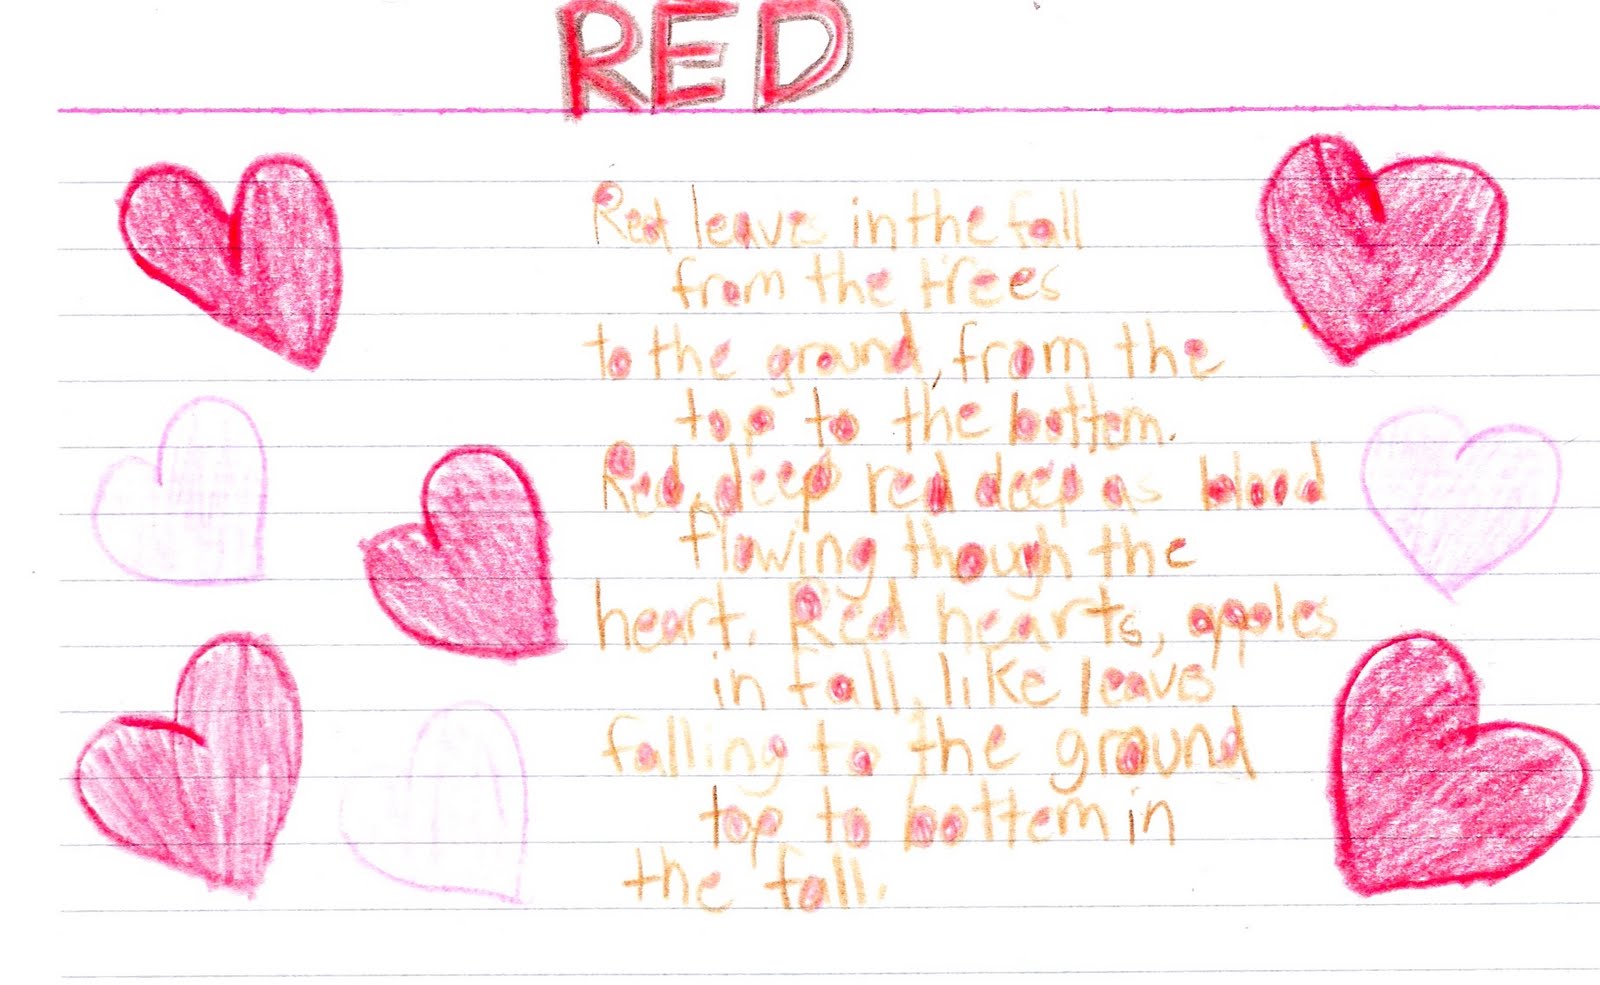 RED
Red leaves in the fall
from the trees
to the ground, from the
top to the bottem.
Red, deep red deep as blood
flowing though the
heart. Red hearts, apples
in fall, like leaves
falling to the ground
top to bottem in
the fall.